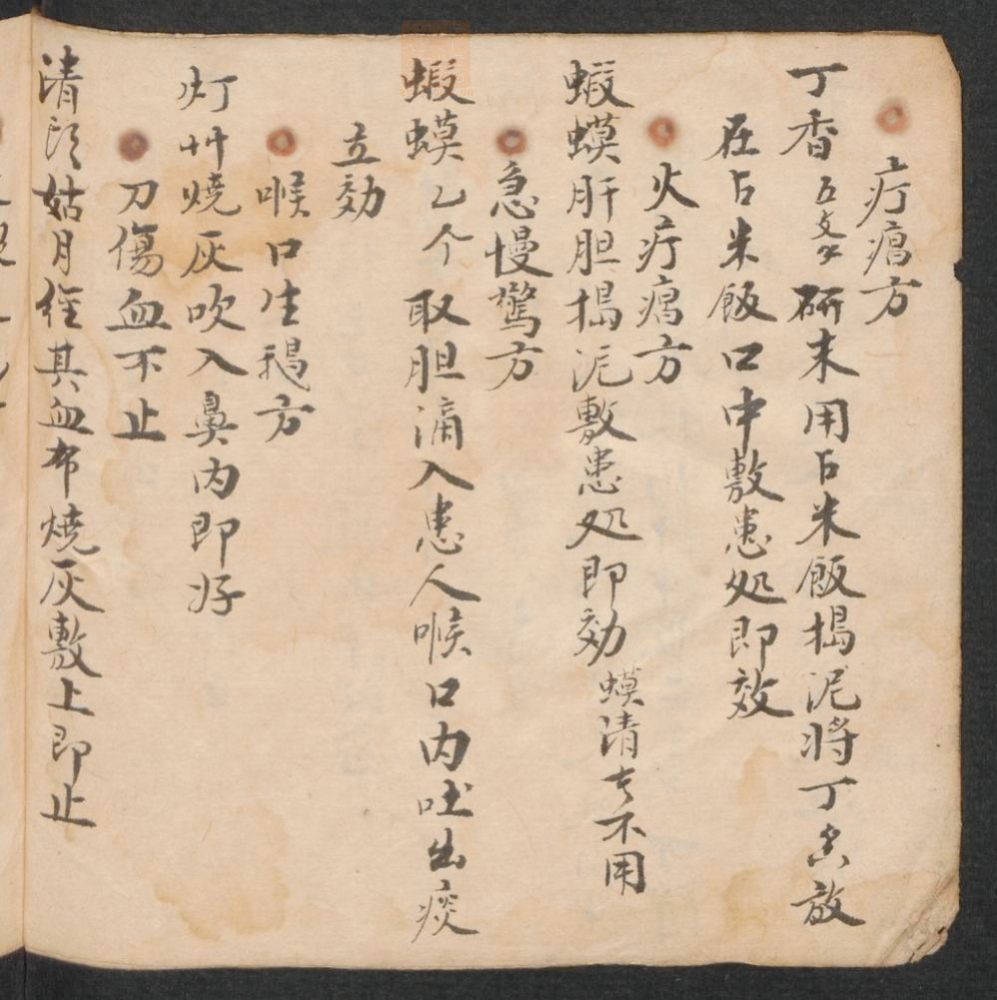 疔瘑方
丁香五文 研末用占米飯搗泥將丁香放
在占米飯口中敷患処即效
火疔瘑方
蝦蟆肝胆搗泥敷患処即効 蟆清去不用
急慢驚方
蝦蟆乙个 取胆滴入患人喉口内吐出痰
立効
喉口生鵝方
灯艸燒灰吹入鼻内即好
刀傷血不止
清 姑月經其血布燒灰敷上即止